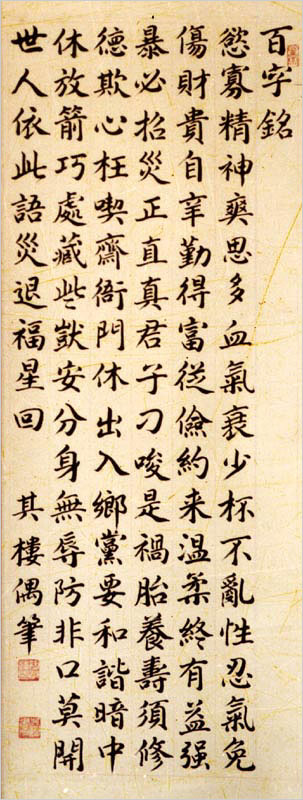 百字銘
慾寡精神爽思多血氣衰少杯不亂性忍氣免
傷財貴自辛勤得富從儉約来温柔終有益强
暴必招災正直真君子刁唆是禍胎養壽須修
德欺心枉喫齋衙門休出入鄉黨要和諧暗中
休放箭巧處藏些獃安分身無辱防非口莫開
世人依此語災退福星回 其樓偶筆